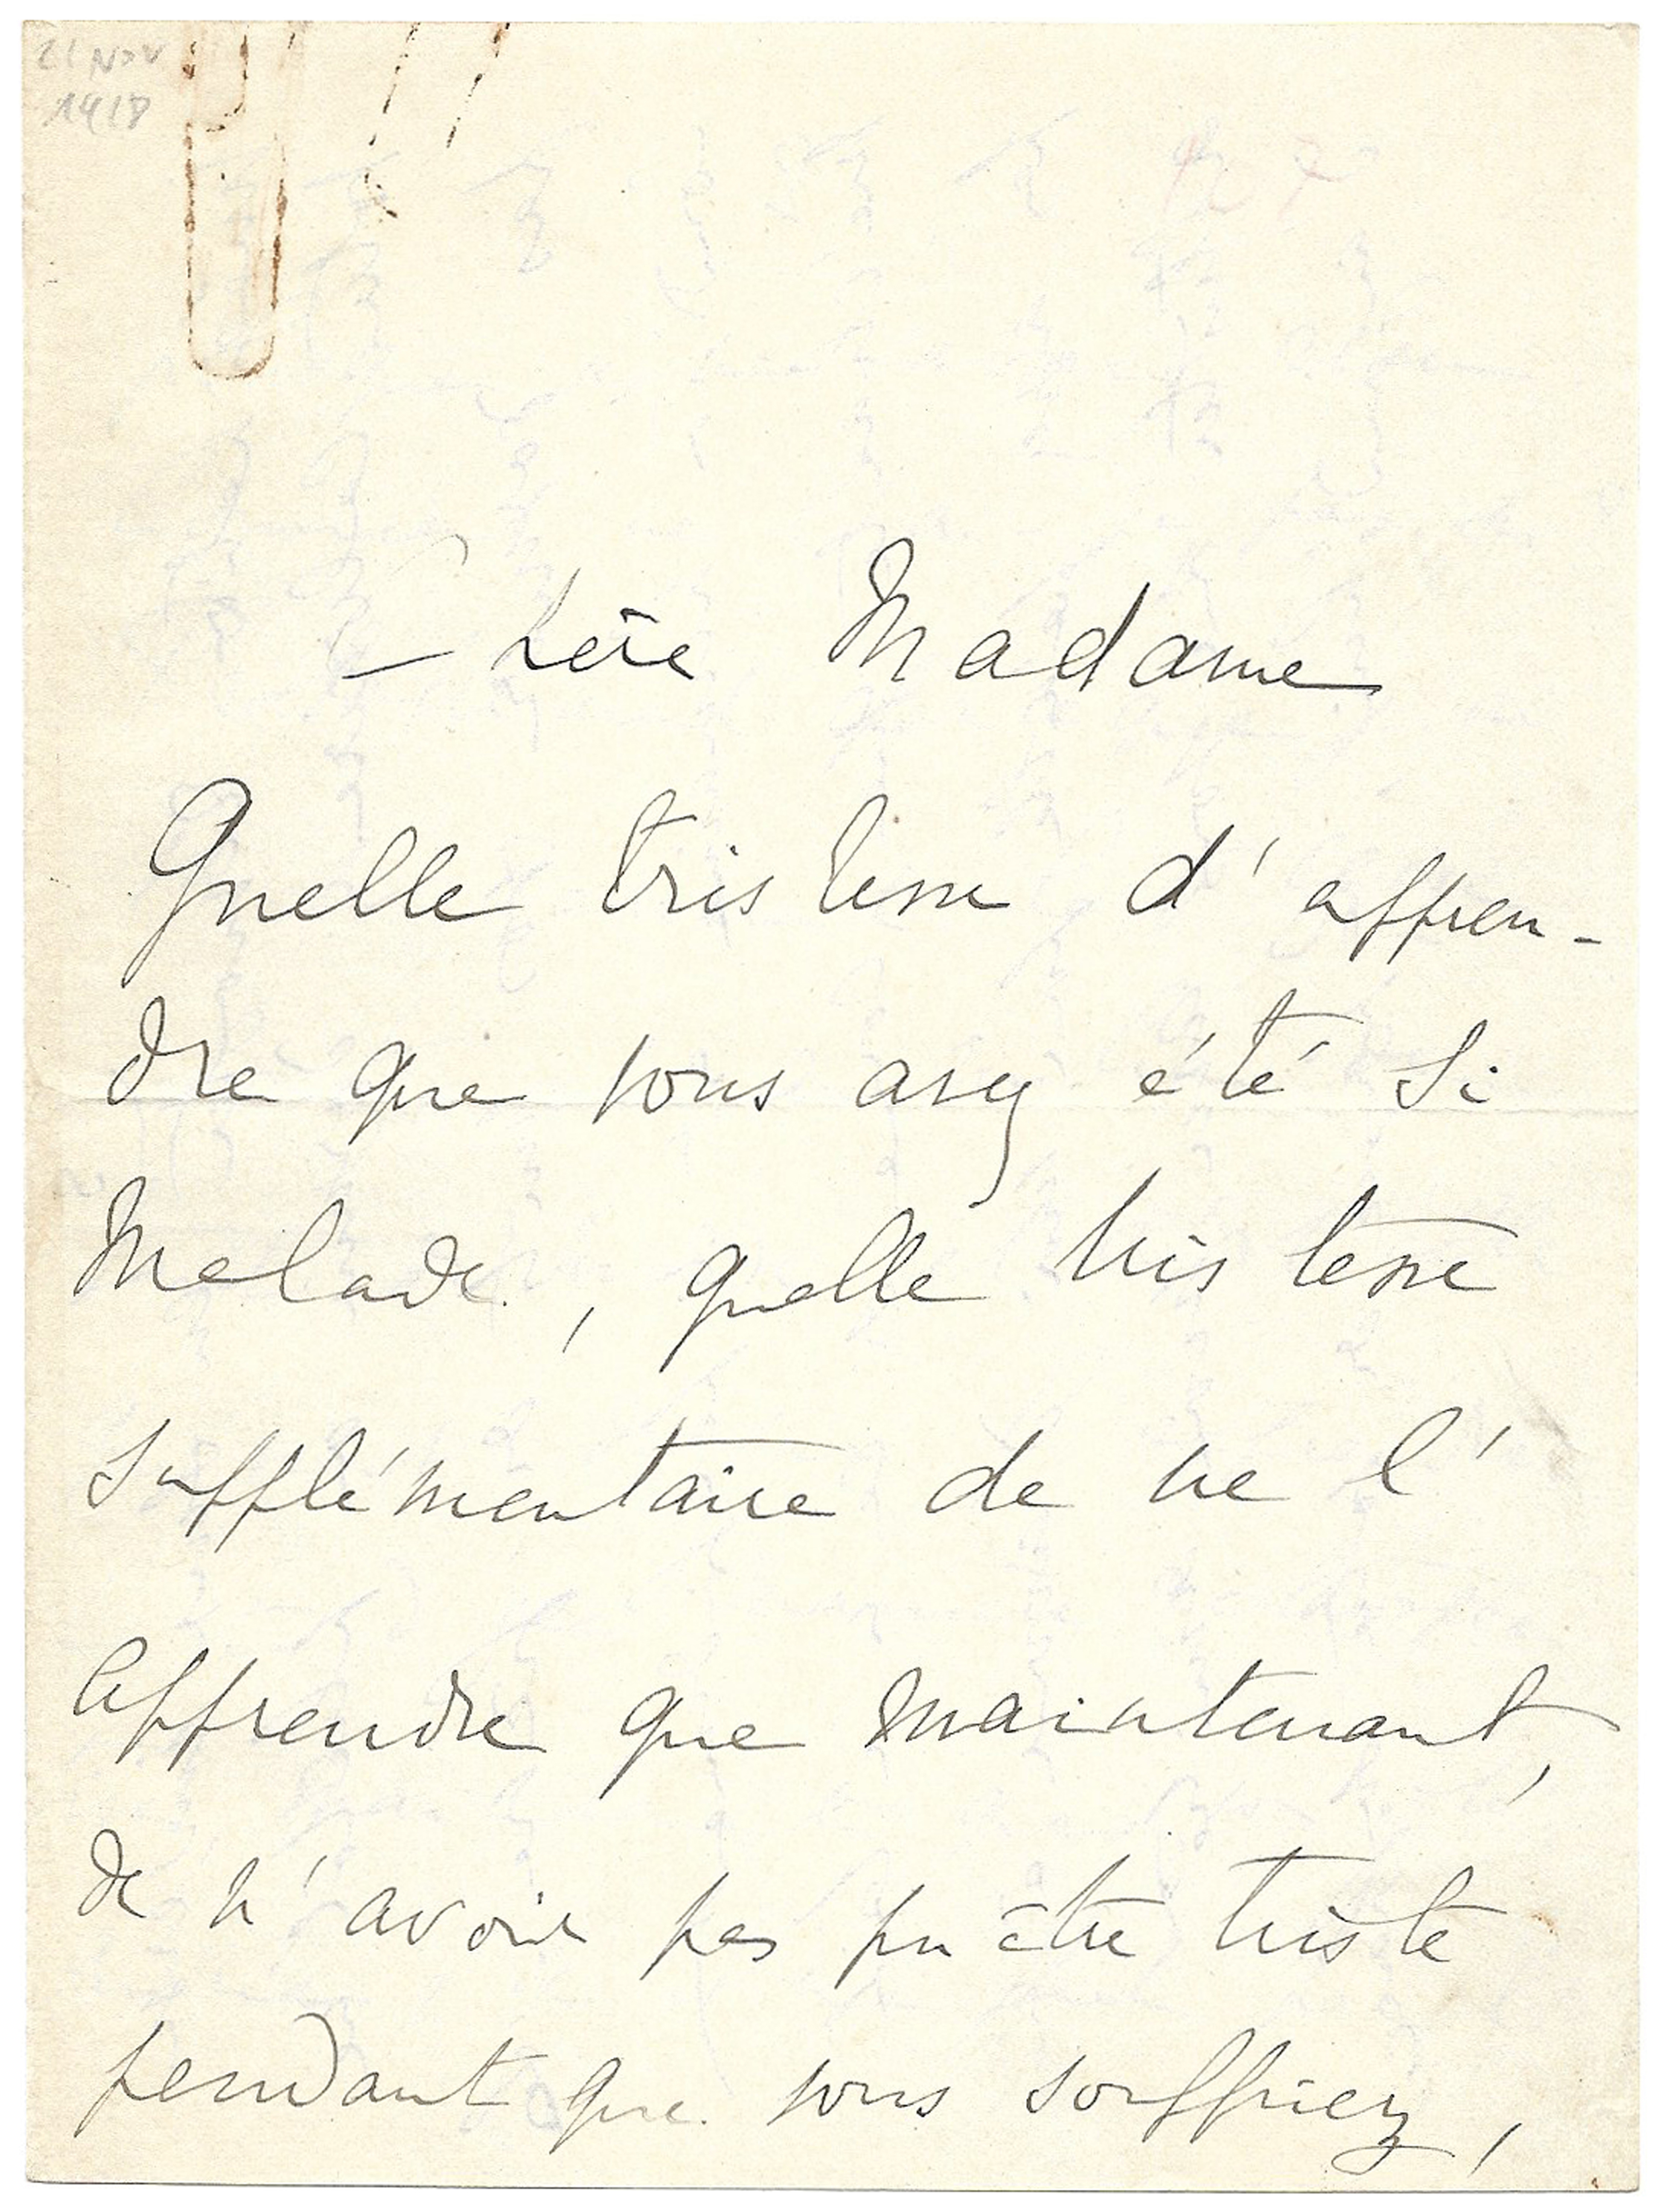 21 Nov
1918
Chère Madame
Quelle tristesse d'appren-
dre que vous avez été si
malade, quelle tristesse
supplémentaire de ne l'
apprendre que maintenant,
de n'avoir pas pu être triste
pendant que vous souffriez,